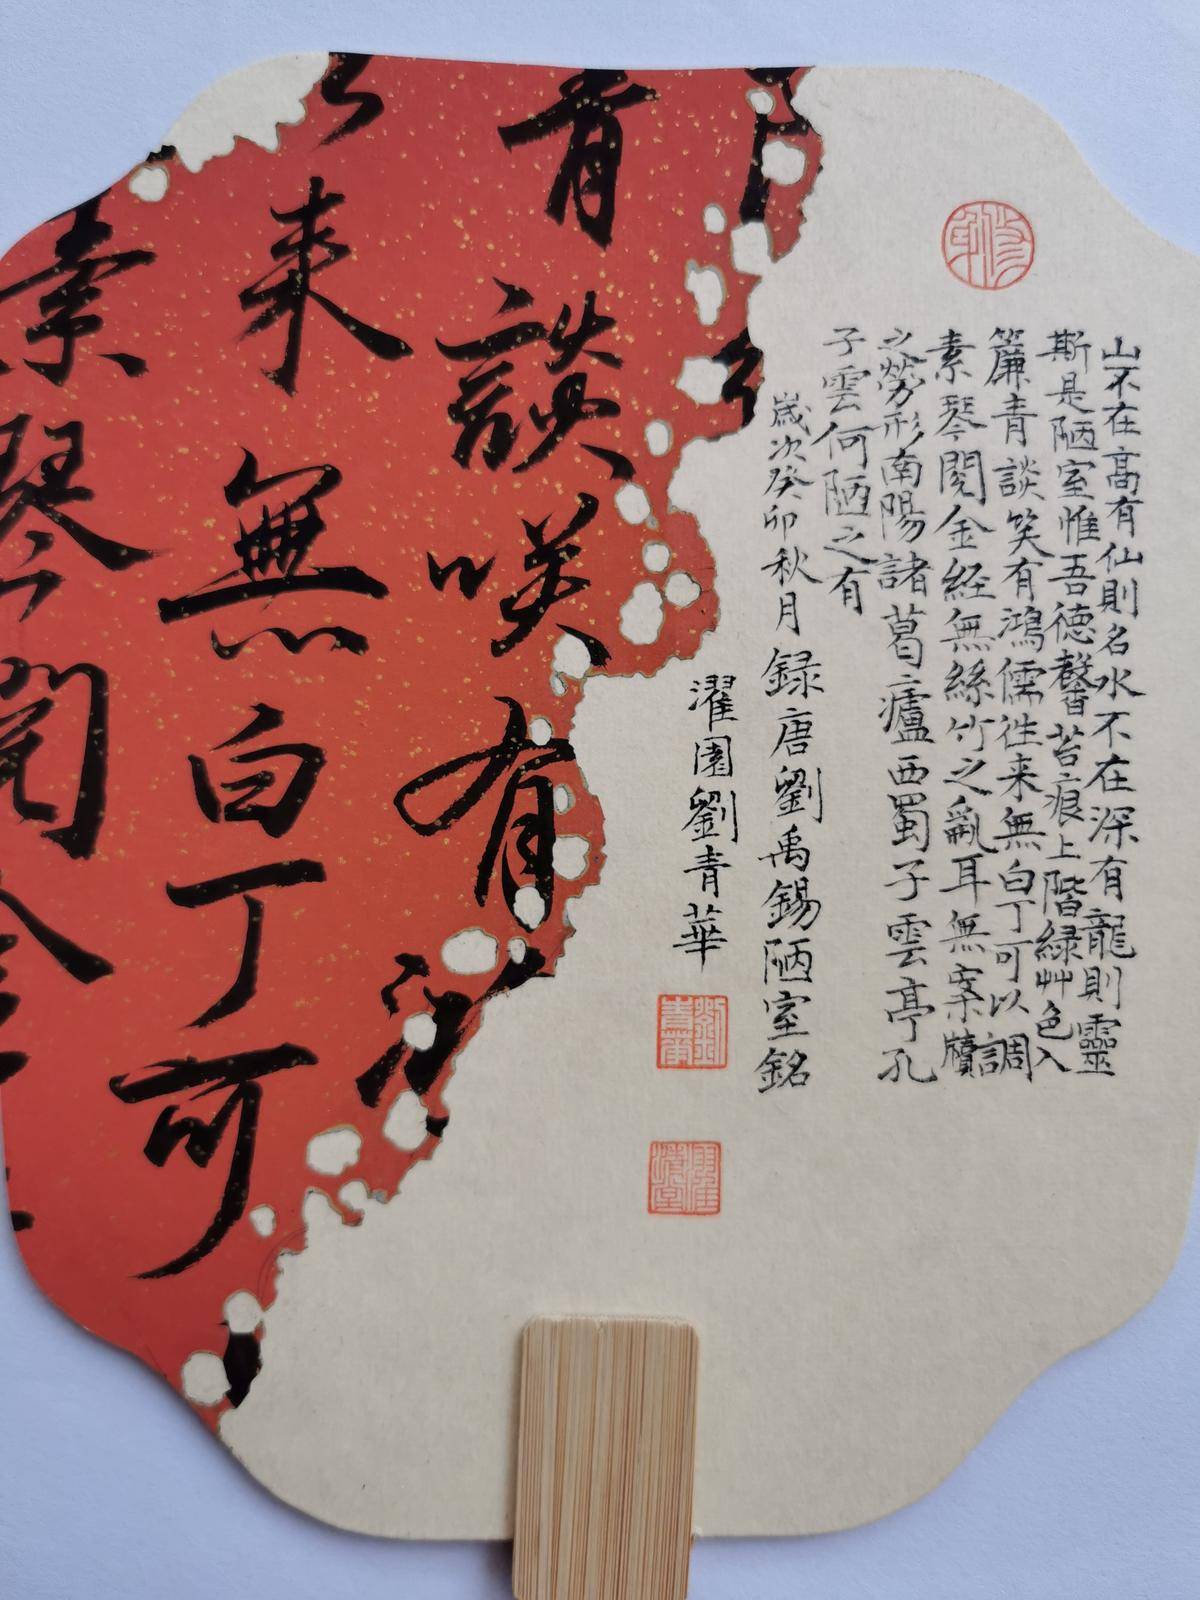 山不在高有仙則名水不在深有龍則靈
斯是陋室惟吾德馨苔痕上階緑艸色入
簾青談笑有鴻儒往来無白丁可以調
素琴閱金経無絲竹之亂耳無案牘
之勞形南陽諸葛廬西蜀子雲亭孔
子雲何陋之有
歲次癸卯秋月録唐劉禹錫陋室銘
濯園劉青華
劉青華
青談咲有
来無白丁可
素琴閱金